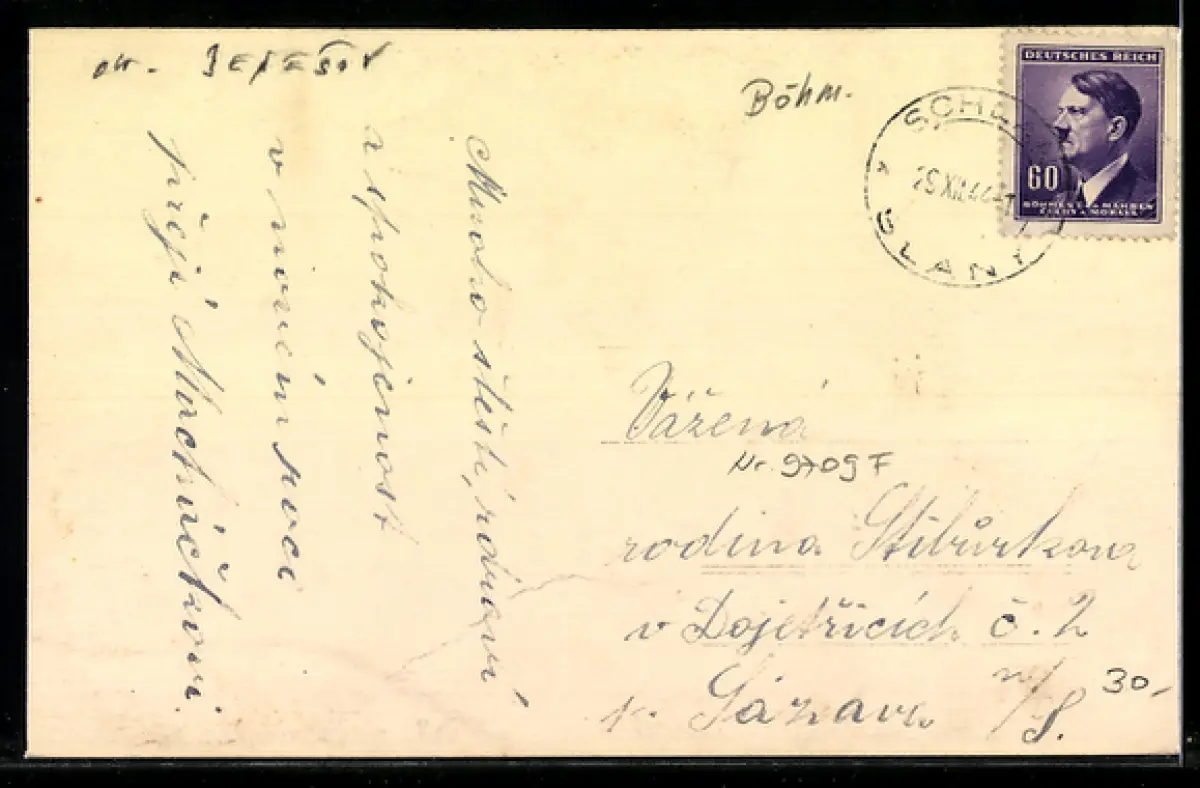 Böhm.
DEUTSCHES REICH
60
BÖHMEN U. MÄHREN
ČECHY A MORAVA
SLANÝ
Mnoho štěstí, zdraví
a spokojenost
v novém roce
přejí Macháčkovi.
Vážená
Nr. 9709 F
rodina Stibůrkova
v Dojetřicích č. 2
p. Sázava n/S.
30,-